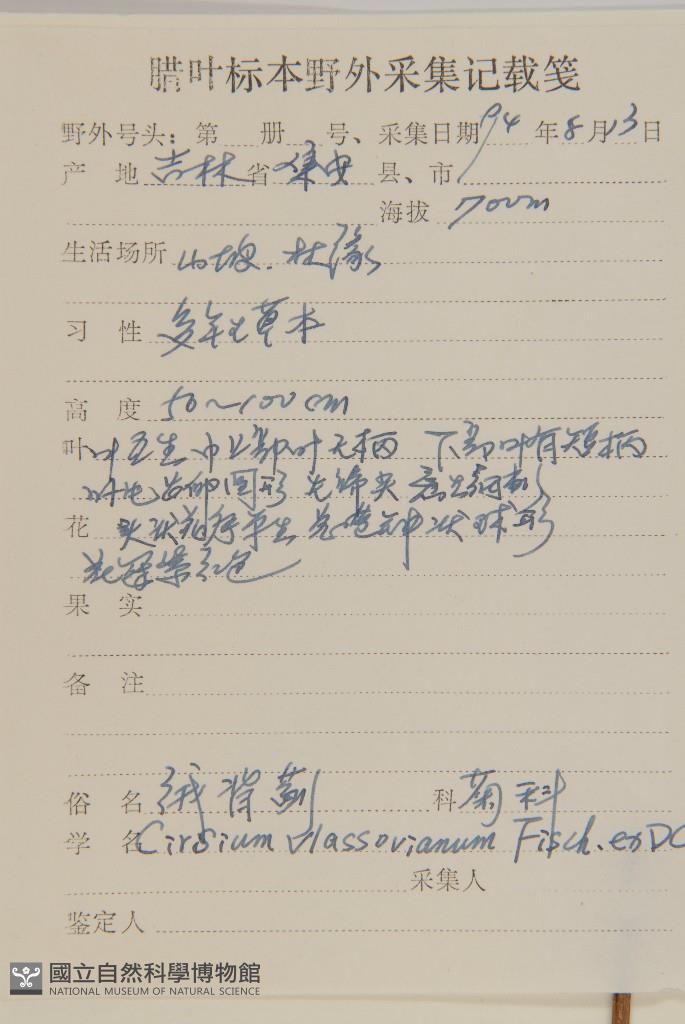 腊叶标本野外采集记载笺
野外号头: 第 册 号、采集日期 94 年 8 月 13 日
产 地 吉林 省 集安 县、市
海拔 700m
生活场所 山坡. 林缘
习 性 多年生草本
高 度 50~100cm
叶 叶互生 中上部叶无柄 下部叶有短柄
卵圆形
花 头状花序单生 总苞钟状球形
花冠紫红色
果 实
备 注
俗 名 绒背蓟 科 菊科
学 名 Cirsium vlassovianum Fisch. ex DC
采集人
鉴定人
國立自然科學博物館
NATIONAL MUSEUM OF NATURAL SCIENCE